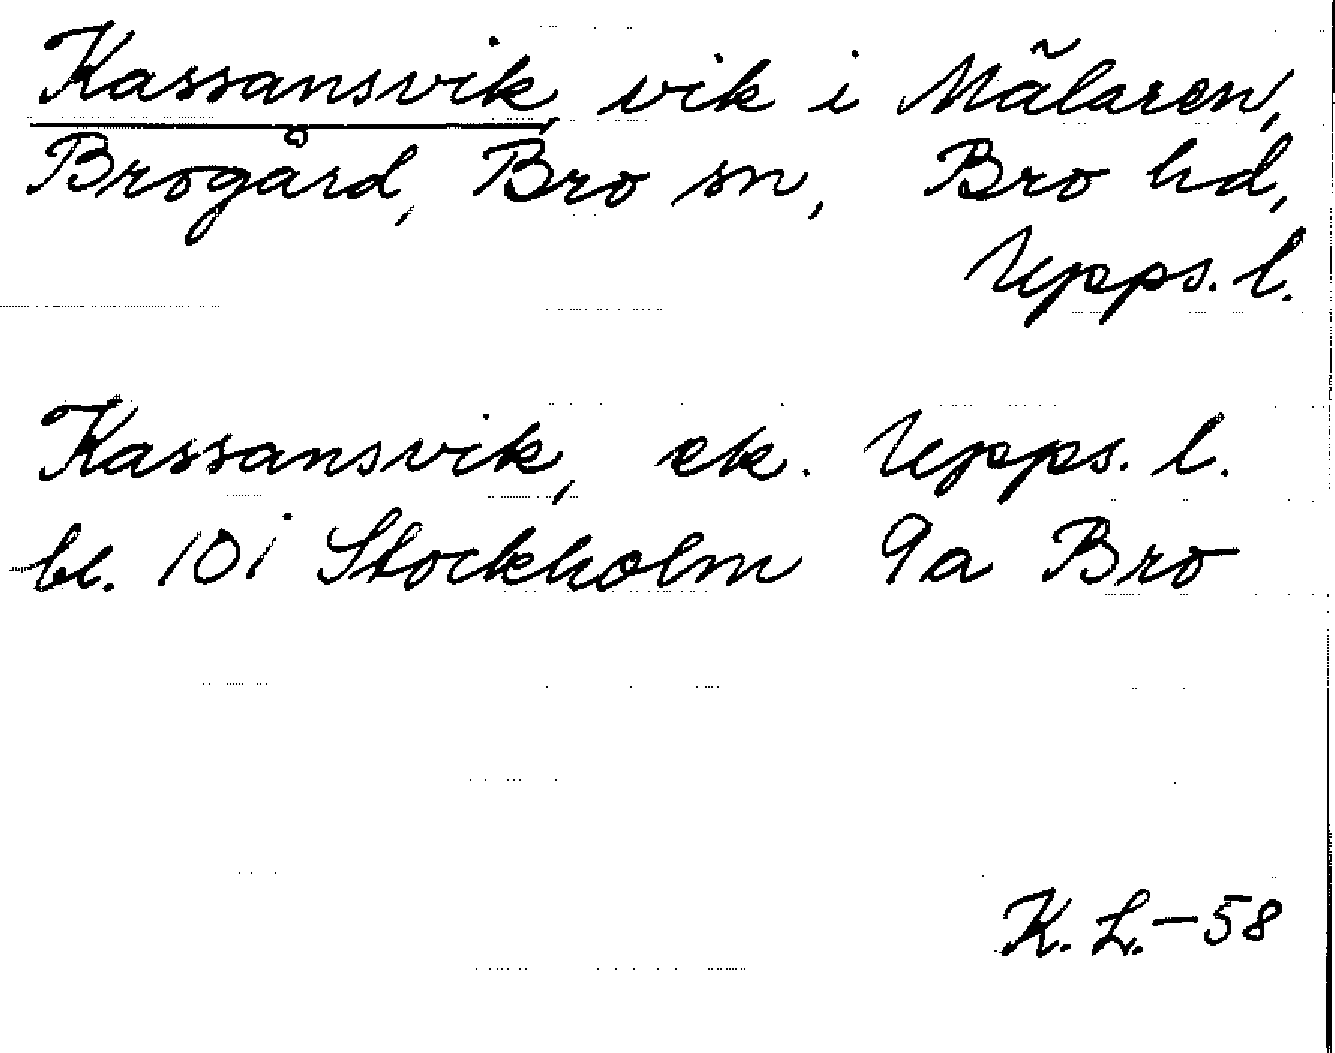 Kassansvik, vik i Mälaren,
Brogård, Bro sn, Bro hd,
Upps. l.
Kassansvik, ek. Upps. l.
bl. 10i Stockholm 9a Bro
K. L. - 58